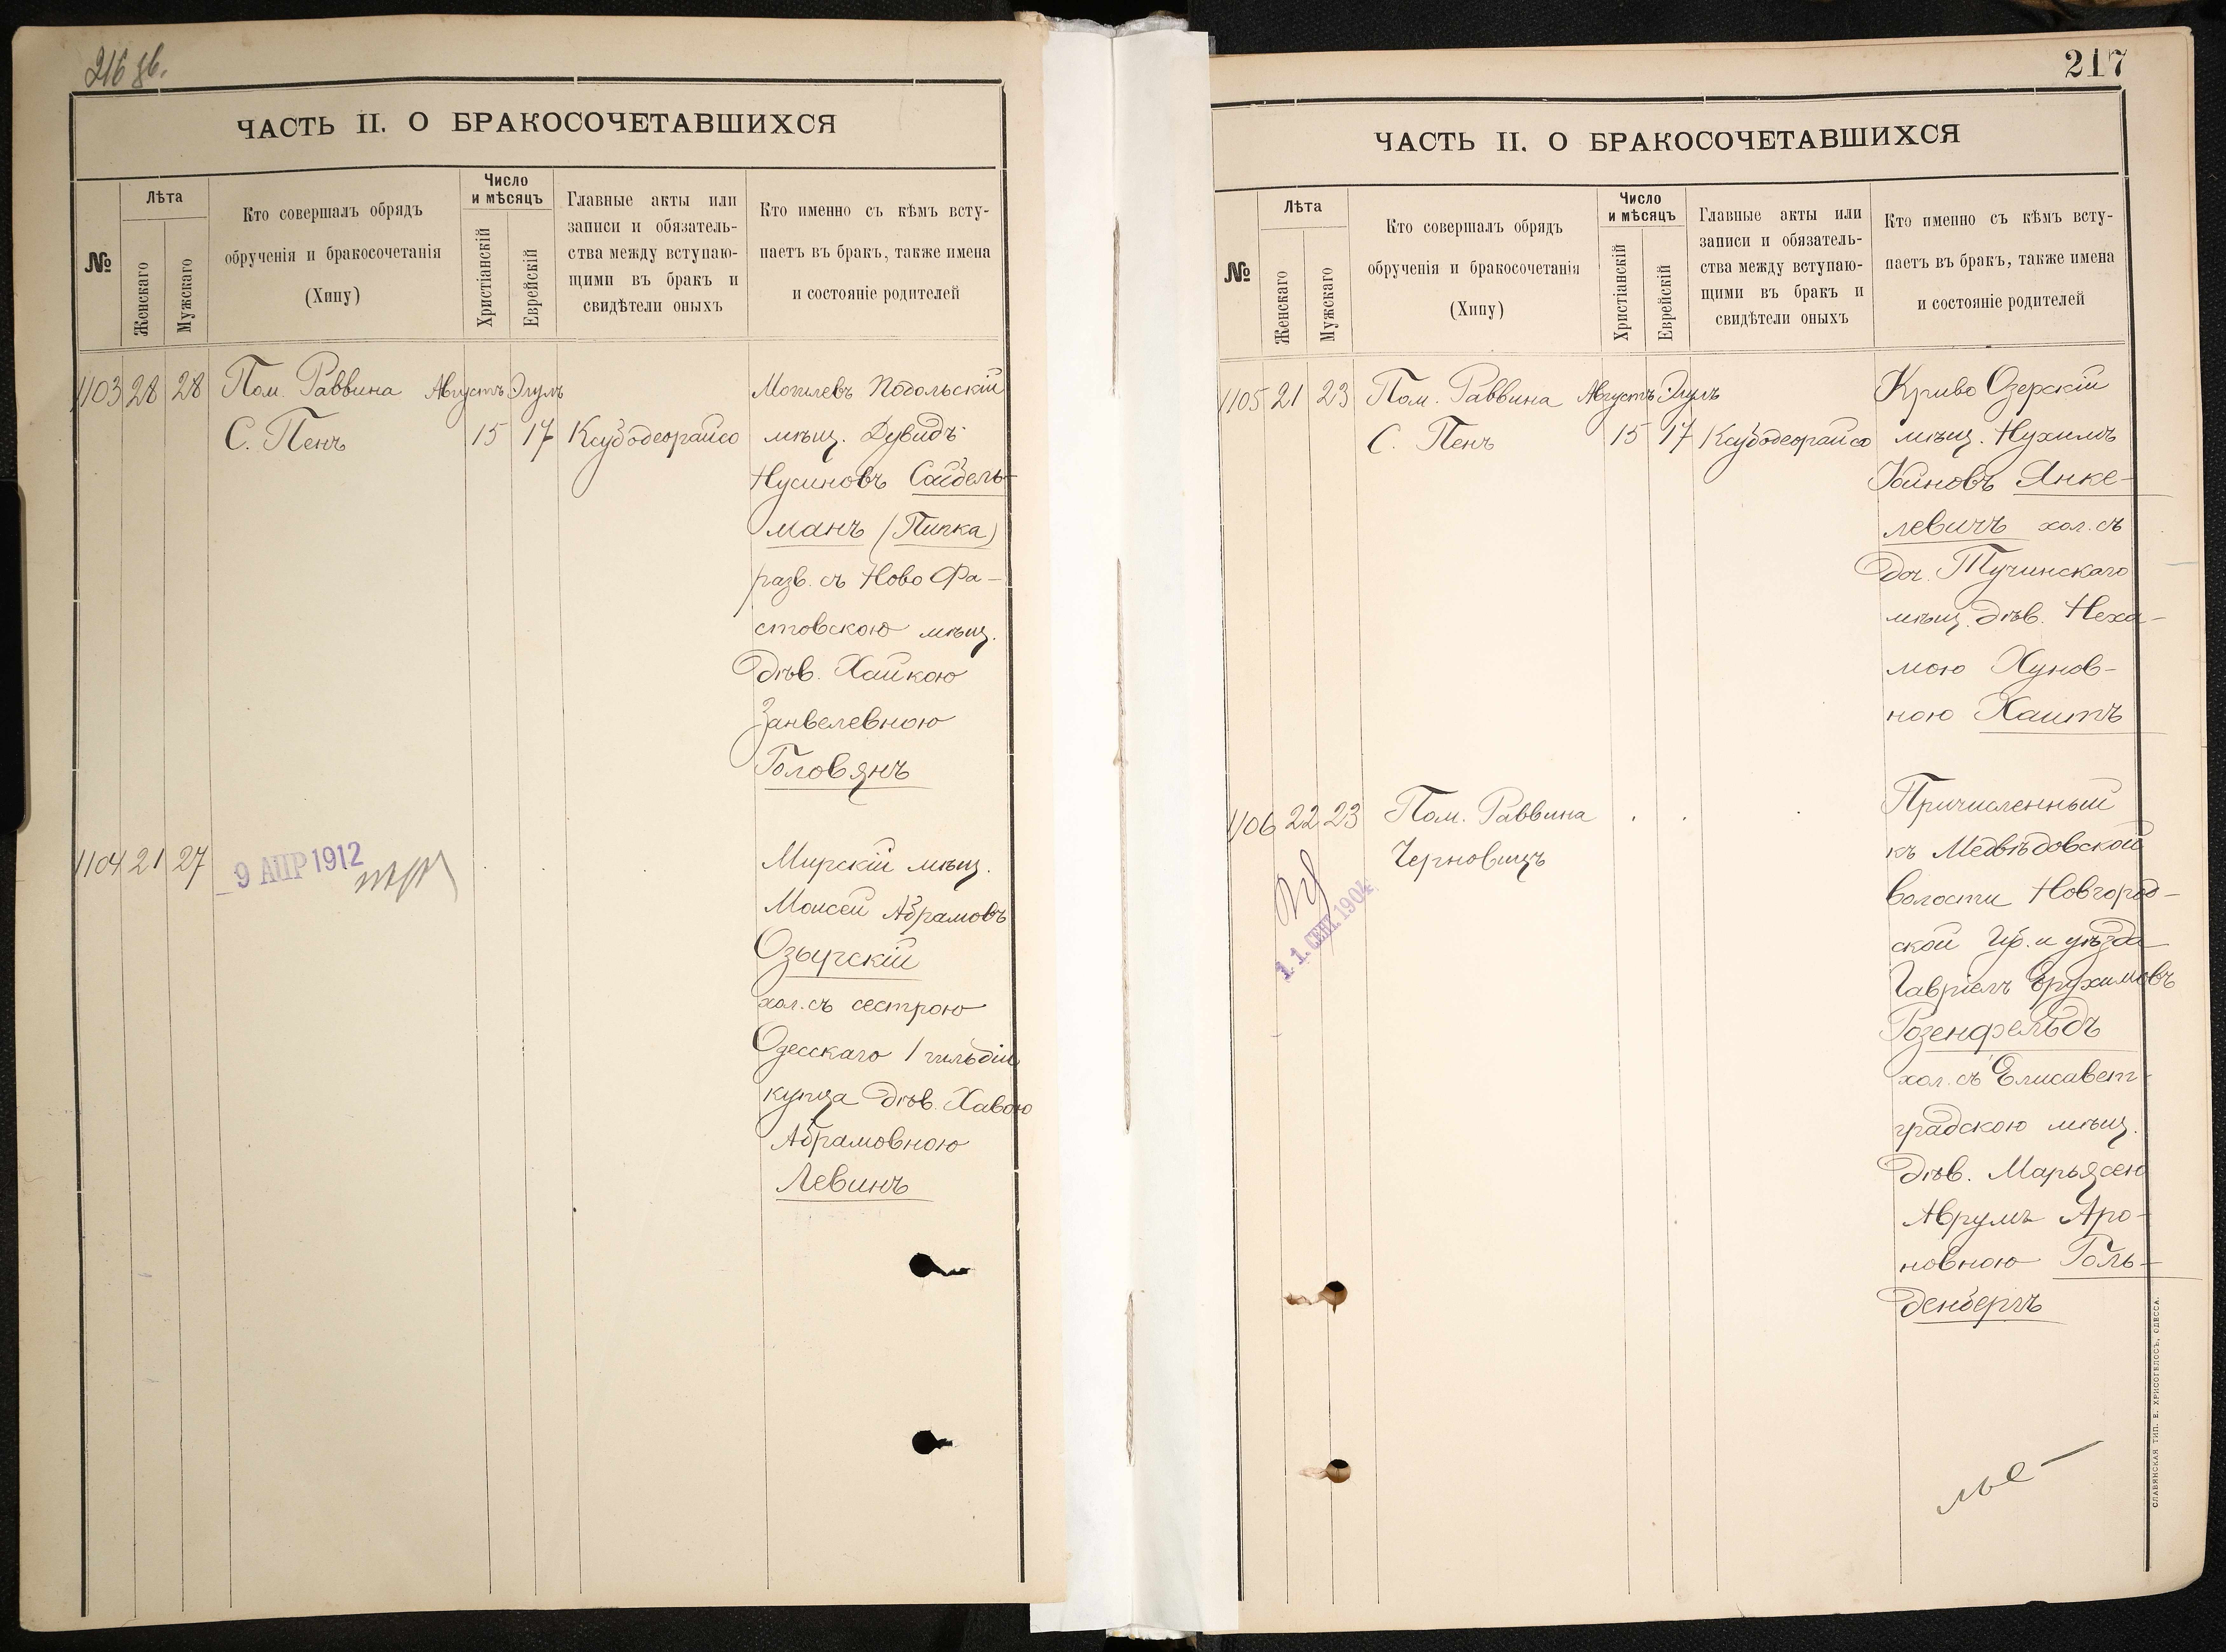 216 об.
ЧАСТЬ II. О БРАКОСОЧЕТАВШИХСЯ
№
Лѣта
Женскаго
Мужскаго
Кто совершалъ обрядъ
обрученія и бракосочетанія
(Хипу)
Число
и мѣсяцъ
Христіанскій
Еврейскій
Главные акты или
записи и обязатель-
ства между вступаю-
щими въ бракъ и
свидѣтели оныхъ
Кто именно съ кѣмъ всту-
паетъ въ бракъ, также имена
и состояніе родителей
1103 28 28 Пом. Раввина Августъ Элулъ
С. Пенъ 15 17 Ксубодеорайсо
Могилевъ Подольскій
мѣщ. Дувидъ
Нусиновъ Сайдель-
манъ (Пипка)
разв. съ Ново Фа-
стовскою мѣщ.
дѣв. Хайкою
Занвелевною
Головянъ
1104 21 27
9 АПР 1912
Мирскій мѣщ.
Моисей Абрамовъ
Озырскій
хол. съ сестрою
Одесскаго 1 гильдіи
купца дѣв. Хавою
Абрамовною
Левинъ
217
ЧАСТЬ II. О БРАКОСОЧЕТАВШИХСЯ
№
Лѣта
Женскаго
Мужскаго
Кто совершалъ обрядъ
обрученія и бракосочетанія
(Хипу)
Число
и мѣсяцъ
Христіанскій
Еврейскій
Главные акты или
записи и обязатель-
ства между вступаю-
щими въ бракъ и
свидѣтели оныхъ
Кто именно съ кѣмъ всту-
паетъ въ бракъ, также имена
и состояніе родителей
1105 21 23 Пом. Раввина Августъ Элулъ
С. Пенъ 15 17 Ксубодеорайсо
Криво Озерскій
мѣщ. Нухимъ
Хаимовъ Янке-
левичъ хол. съ
доч. Тучинскаго
мѣщ. дѣв. Неха-
мою Хунов-
ною Хаитъ
1106 22 23 Пом. Раввина
Черновицъ
11. СЕНТ. 1904
Причисленный
къ Медвѣдовской
волости Новгород-
ской губ. и уѣзда
Гавріелъ Ерухимовъ
Розенфельдъ
хол. съ Елисавет-
градскою мѣщ.
дѣв. Марьясею
Аврумъ Аро-
новною Голь-
денбергъ
СЛАВЯНСКАЯ ТИП. Е. ХРИСОГЕЛОСЪ, ОДЕССА.